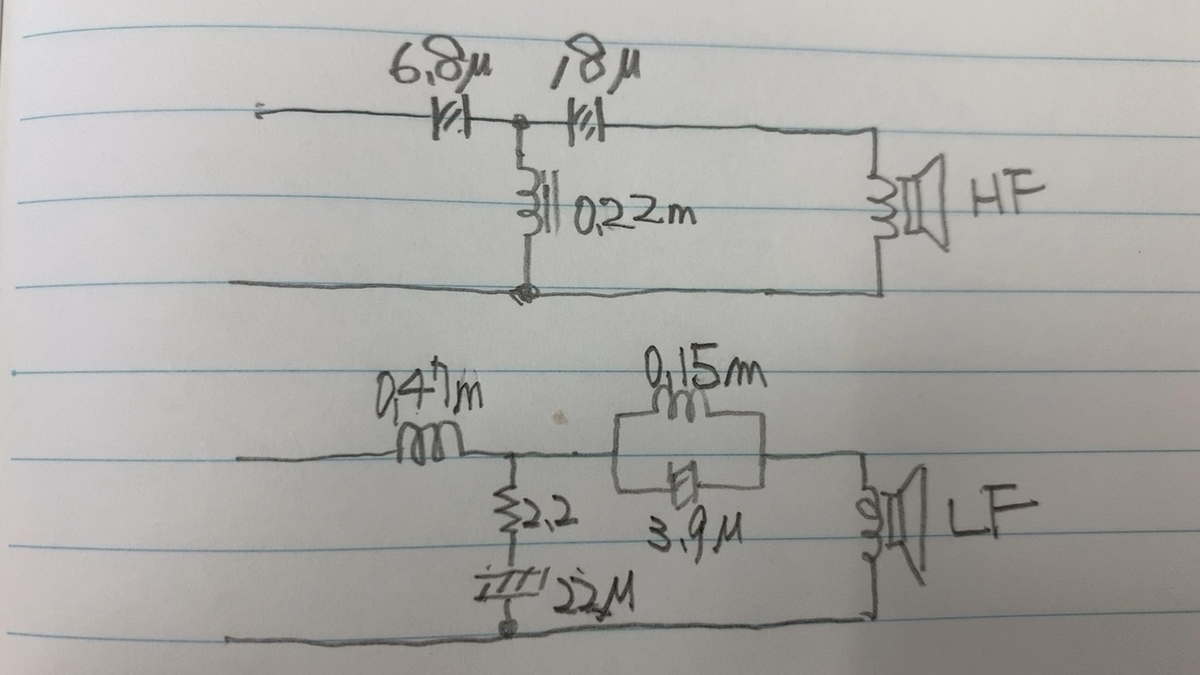 6,8μ ,8μ
0,22m
HF
0,47m
0,15m
2,2
3,9μ
22μ
LF